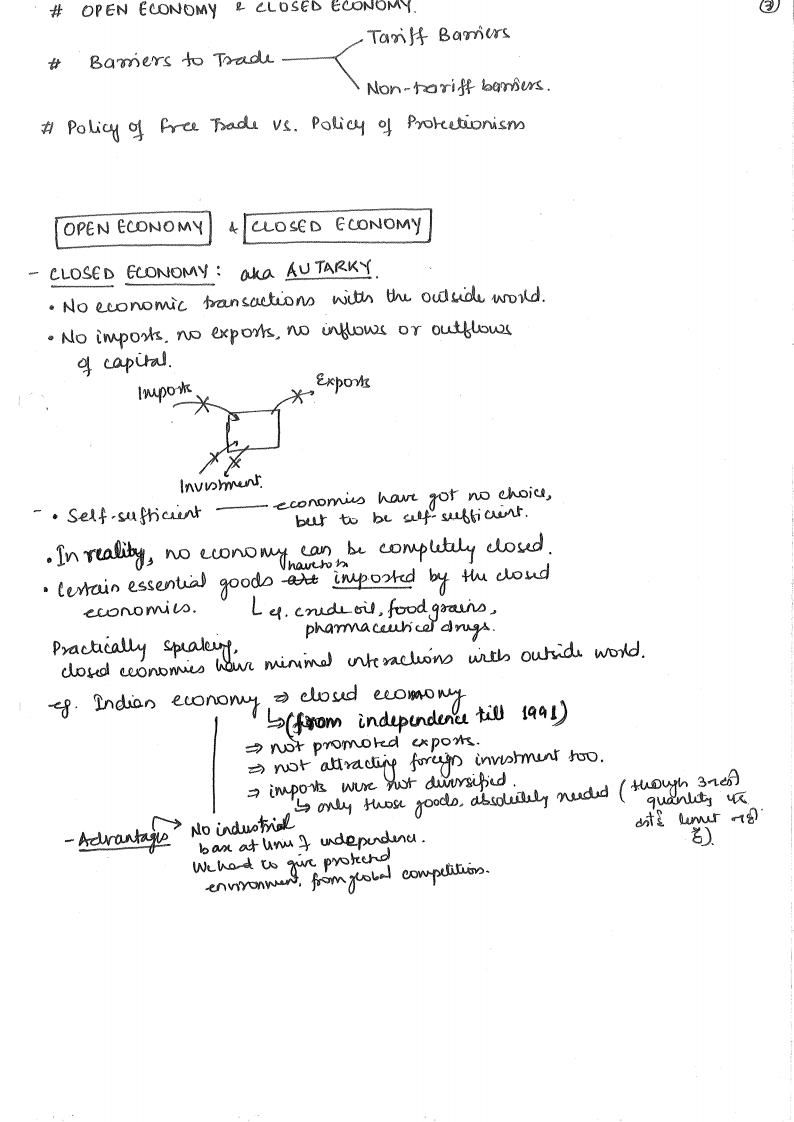 # OPEN ECONOMY & CLOSED ECONOMY.
③
# Barriers to Trade
Tariff Barriers
Non-tariff barriers.
# Policy of Free Trade vs. Policy of Protectionism
OPEN ECONOMY & CLOSED ECONOMY
- CLOSED ECONOMY: aka AUTARKY.
• No economic transactions with the outside world.
• No imports, no exports, no inflows or outflows
of capital.
Imports
Exports
Investment.
- • Self-sufficient — economies have got no choice,
but to be self-sufficient.
• In reality, no economy can be completely closed.
• Certain essential goods have to be imported by the closed
economies.
eg. crude oil, food grains,
pharmaceutical drugs.
Practically speaking,
closed economies have minimal interactions with outside world.
- eg. Indian economy ⇒ closed economy
↳ (from independence till 1991)
⇒ not promoted exports.
⇒ not attracting foreign investment too.
⇒ imports were not diversified.
↳ only those goods, absolutely needed (though उनकी
quantity पर
कोई limit नहीं
है).
- Advantages → No industrial
base at time of independence.
We had to give protected
environment, from global competitions.